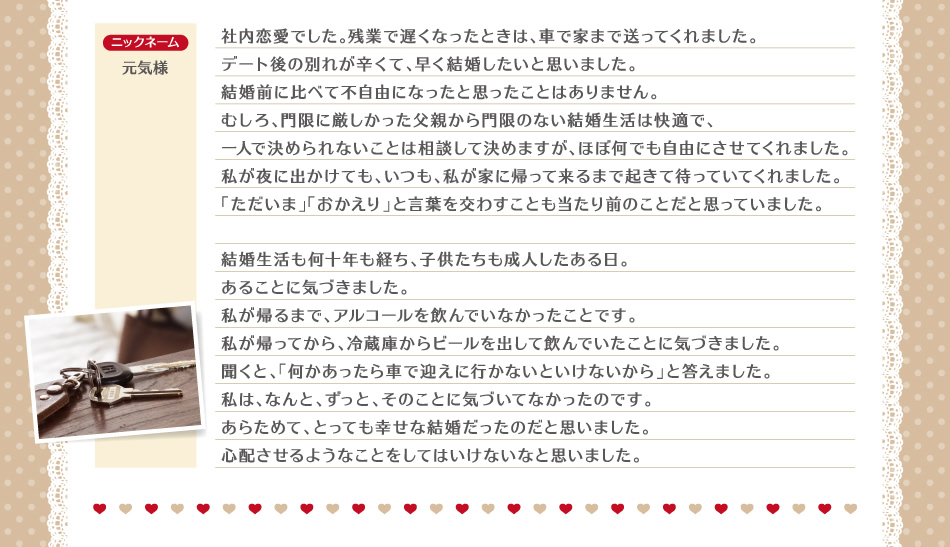 ニックネーム
元気様
社内恋愛でした。残業で遅くなったときは、車で家まで送ってくれました。
デート後の別れが辛くて、早く結婚したいと思いました。
結婚前に比べて不自由になったと思ったことはありません。
むしろ、門限に厳しかった父親から門限のない結婚生活は快適で、
一人で決められないことは相談して決めますが、ほぼ何でも自由にさせてくれました。
私が夜に出かけても、いつも、私が家に帰って来るまで起きて待っていてくれました。
「ただいま」「おかえり」と言葉を交わすことも当たり前のことだと思っていました。
結婚生活も何十年も経ち、子供たちも成人したある日。
あることに気づきました。
私が帰るまで、アルコールを飲んでいなかったことです。
私が帰ってから、冷蔵庫からビールを出して飲んでいたことに気づきました。
聞くと、「何かあったら車で迎えに行かないといけないから」と答えました。
私は、なんと、ずっと、そのことに気づいてなかったのです。
あらためて、とっても幸せな結婚だったのだと思いました。
心配させるようなことをしてはいけないなと思いました。